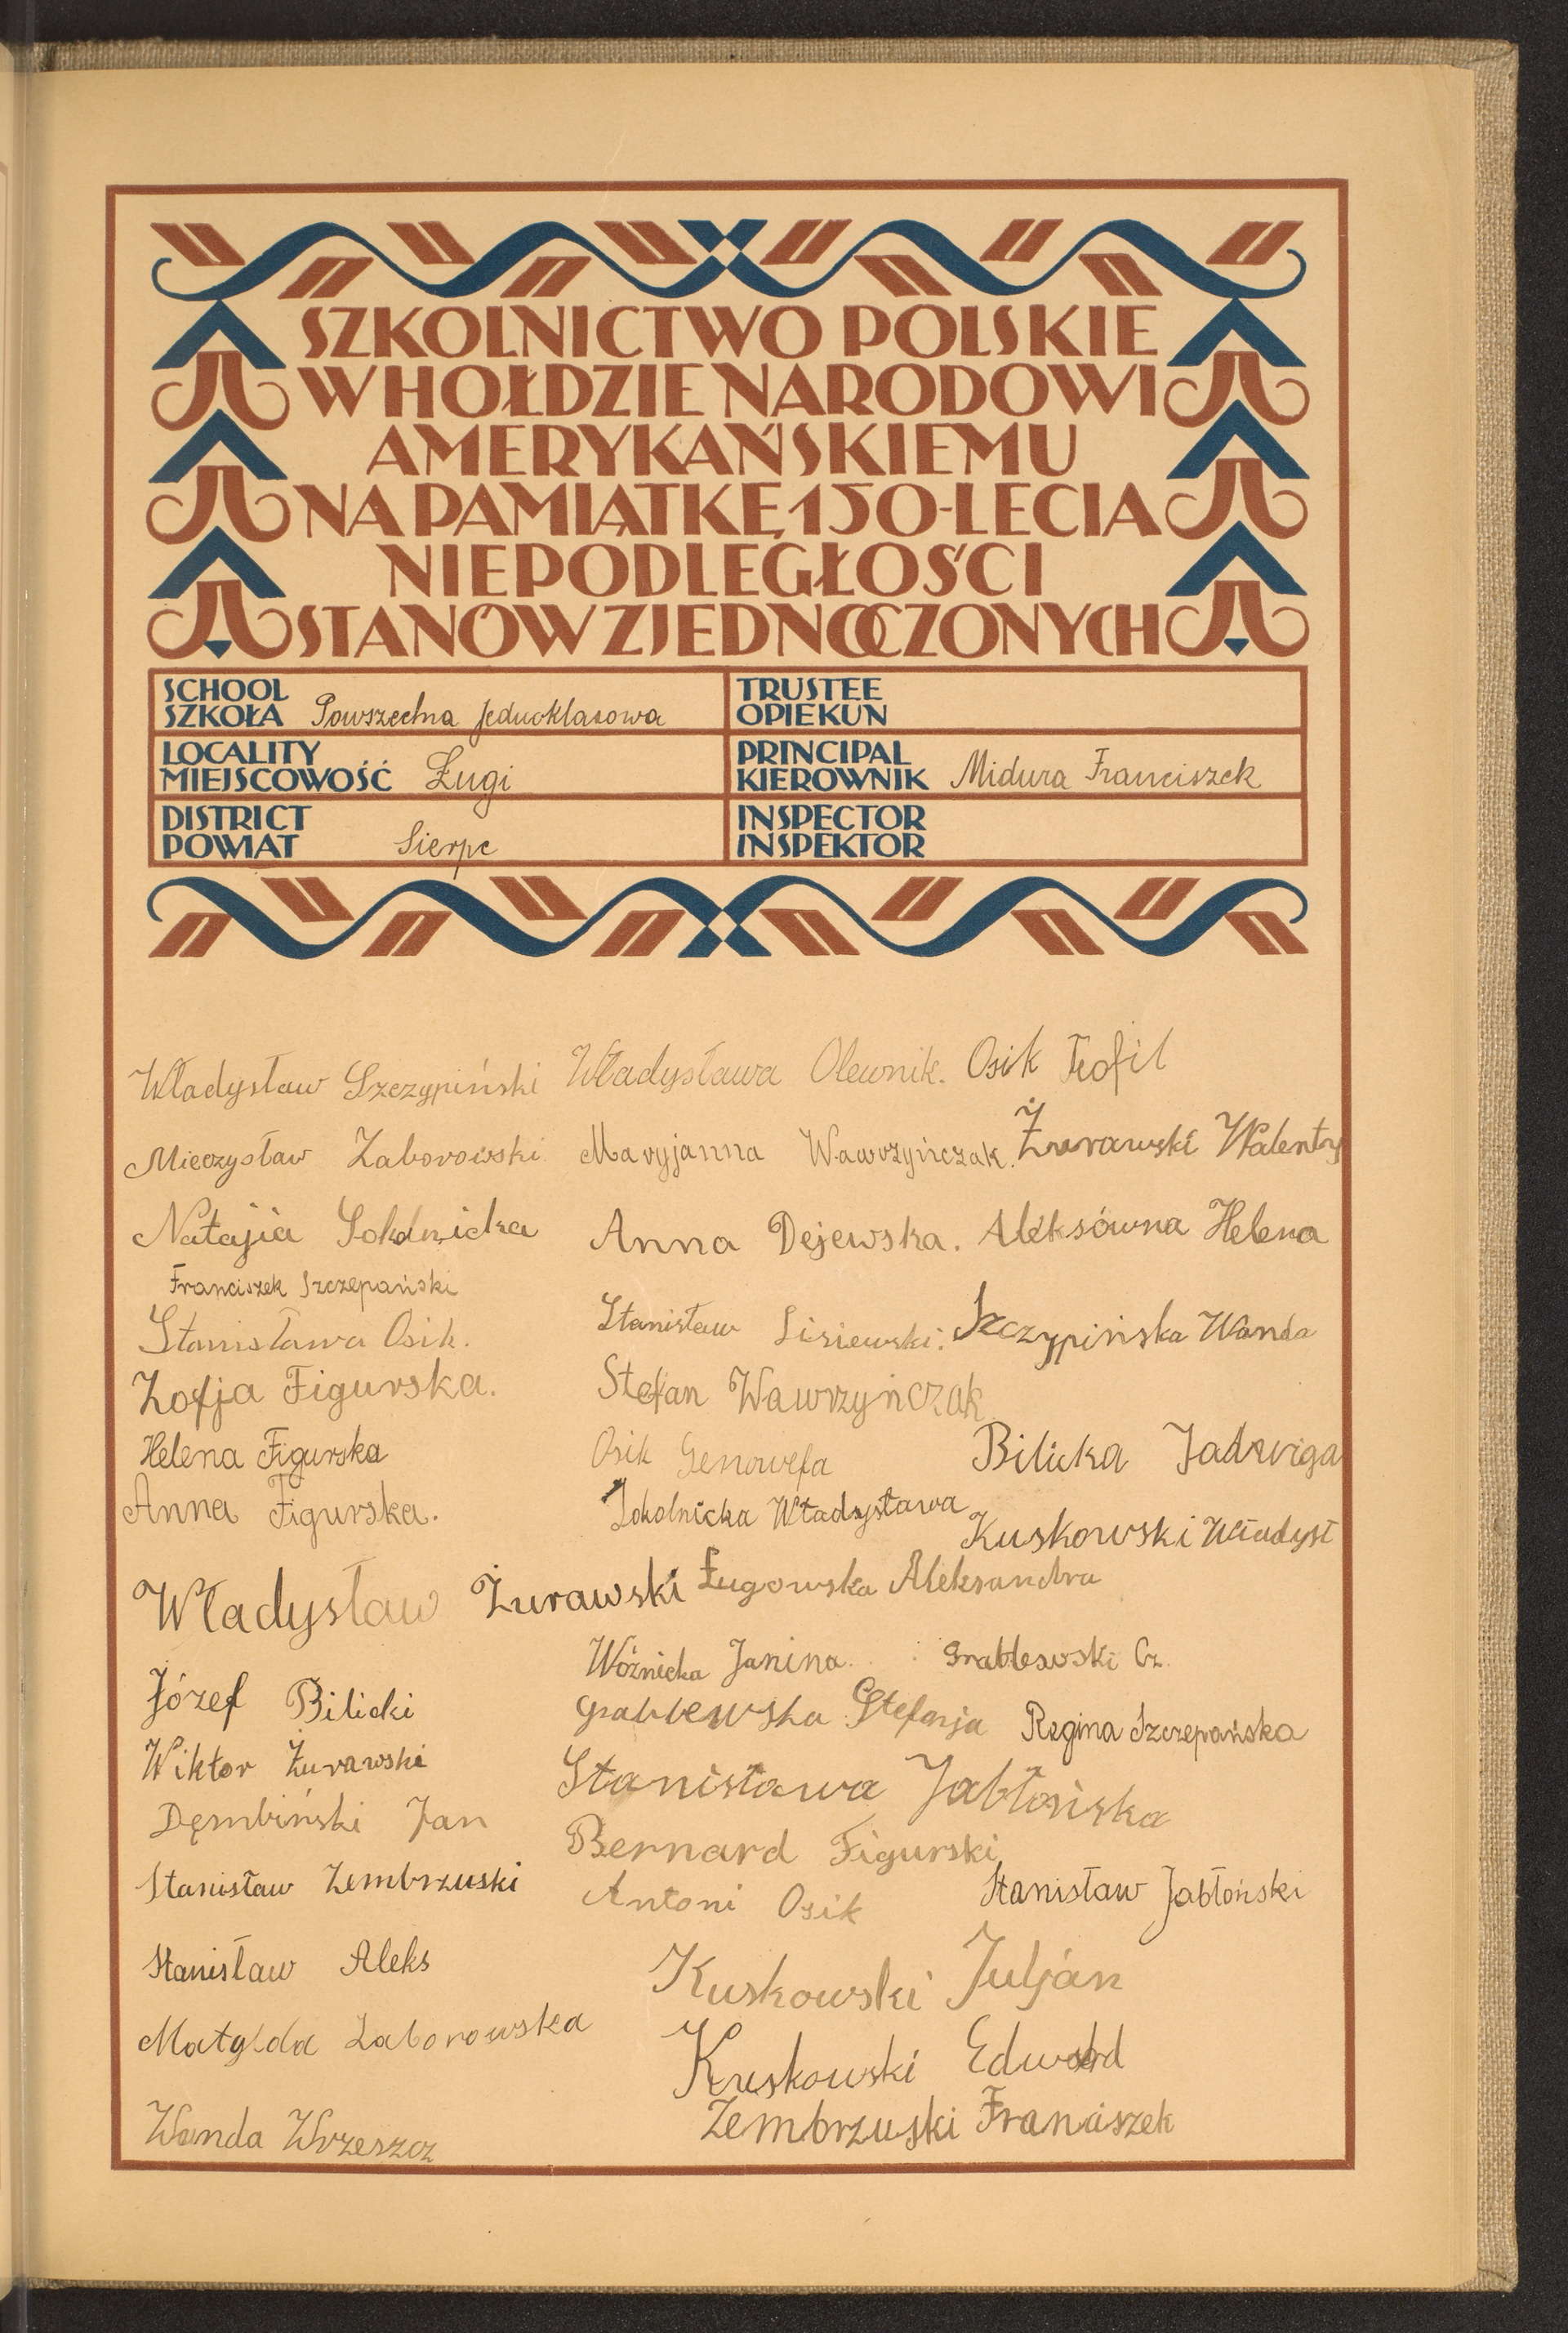 SZKOLNICTWO POLSKIE
W HOŁDZIE NARODOWI
AMERYKAŃSKIEMU
NA PAMIĄTKĘ 150-LECIA
NIEPODLEGŁOŚCI
STANÓW ZJEDNOCZONYCH
SCHOOL
SZKOŁA Powszechna jednoklasowa
TRUSTEE
OPIEKUN
LOCALITY
MIEJSCOWOŚĆ Ługi
PRINCIPAL
KIEROWNIK Midura Franciszek
DISTRICT
POWIAT Sierpc
INSPECTOR
INSPEKTOR
Władysław Szczypiński Władysława Olewnik. Osik Teofil
Mieczysław Zaborowski Maryjanna Wawrzyńczak. Żurawski Walenty
Natajia Sokolnicka Anna Dejewska. Aleksówna Helena
Franciszek Szczepański
Stanisława Osik. Stanisław Lisiewski. Szczypińska Wanda
Zofja Figurska. Stefan Wawrzyńczak
Helena Figurska Osik Genowefa Bilicka Jadwiga
Anna Figurska. Sokolnicka Władysława Kuskowski Władysł
Władysław Żurawski Ługowska Aleksandra
Woźnicka Janina. Grablewski Cz.
Józef Bilicki Grablewska Stefanja Regina Szczepańska
Wiktor Żurawski Stanisława Jabłońska
Dęmbiński Jan Bernard Figurski
Stanisław Zembrzuski Antoni Osik Stanisław Jabłoński
Stanisław Aleks Kuskowski Julján
Matylda Zaborowska Kuskowski Edward
Wanda Wrzeszcz Zembrzuski Franciszek